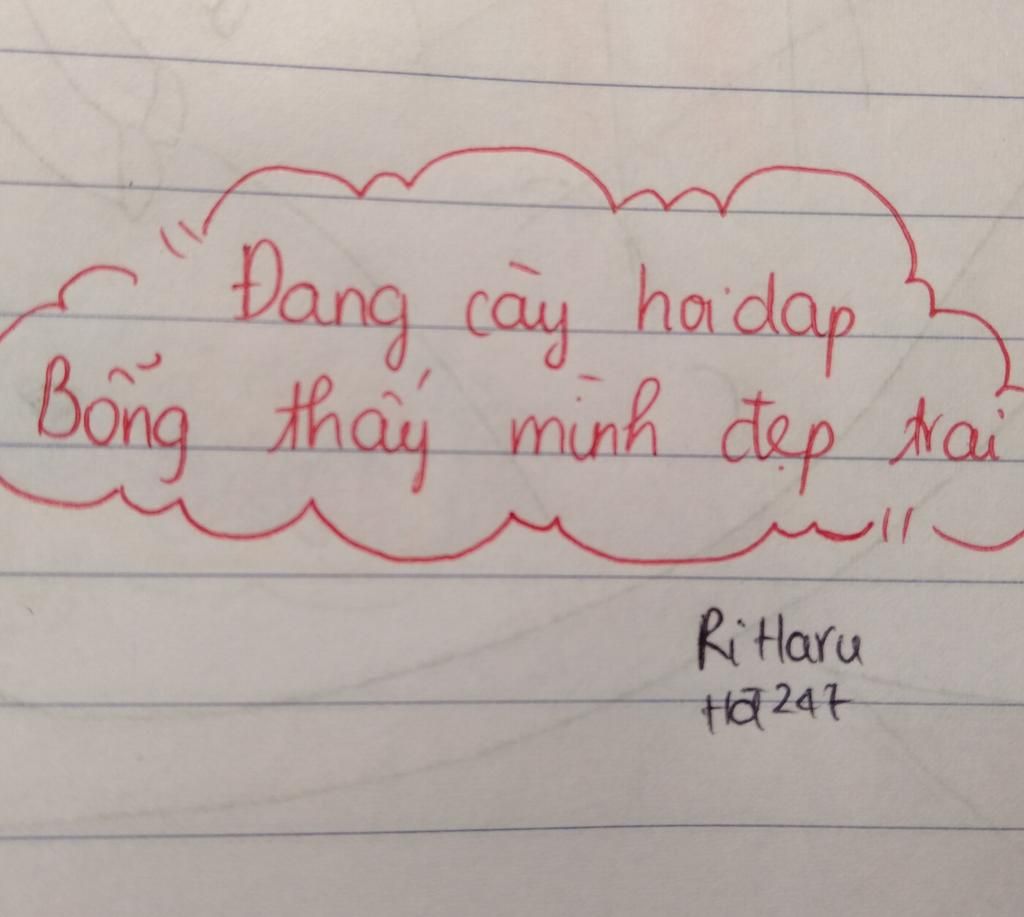 "Đang cày hoidap
Bỗng thấy mình đẹp trai"
Ri Haru
H247